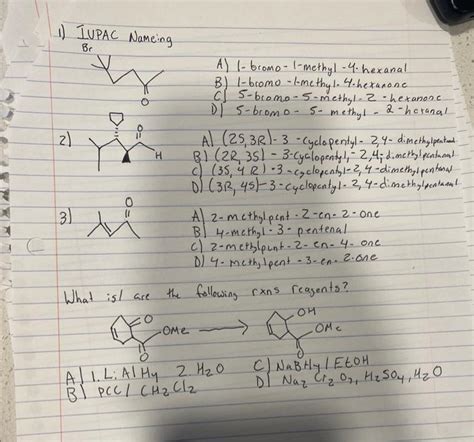 1) IUPAC Nameing
Br
O
A) 1-bromo-1-methyl-4-hexanal
B) 1-bromo-1-methyl-4-hexanone
C) 5-bromo-5-methyl-2-hexanone
D) 5-bromo-5-methyl-2-hexanal
2)
O
H
A) (2S,3R)-3-cyclopentyl-2,4-dimethylpentanal
B) (2R,3S)-3-cyclopentyl-2,4-dimethylpentanal
C) (3S,4R)-3-cyclopentyl-2,4-dimethylpentanal
D) (3R,4S)-3-cyclopentyl-2,4-dimethylpentanal
3)
O
A) 2-methylpent-2-en-2-one
B) 4-methyl-3-pentenal
C) 2-methylpent-2-en-4-one
D) 4-methylpent-3-en-2-one
What is/are the following rxns reagents?
O
OMe
O
OH
OMe
O
A) 1. LiAlH4 2. H2O
B) PCC/CH2Cl2
C) NaBH4/EtOH
D) Na2Cr2O7, H2SO4, H2O